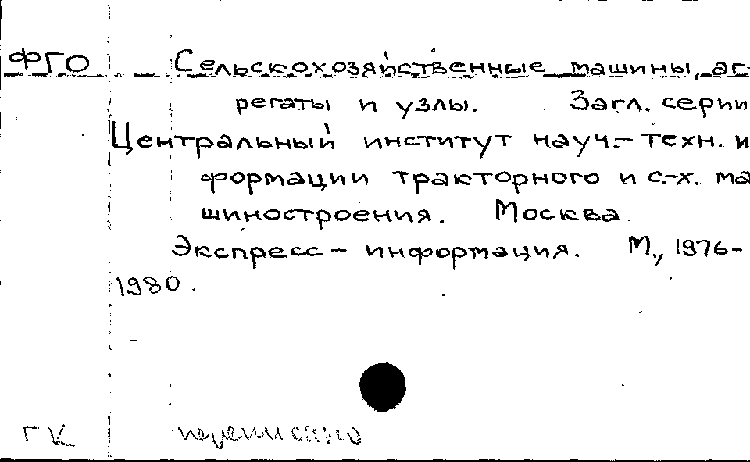 ФГО Сельскохозяйственные машины, аг-
регаты и узлы. Загл. серии
Центральный институт науч.-техн. и
формации тракторного и с.-х. ма
шиностроения. Москва.
Экспресс-информация. М., 1976-
1980.
ГК переписано